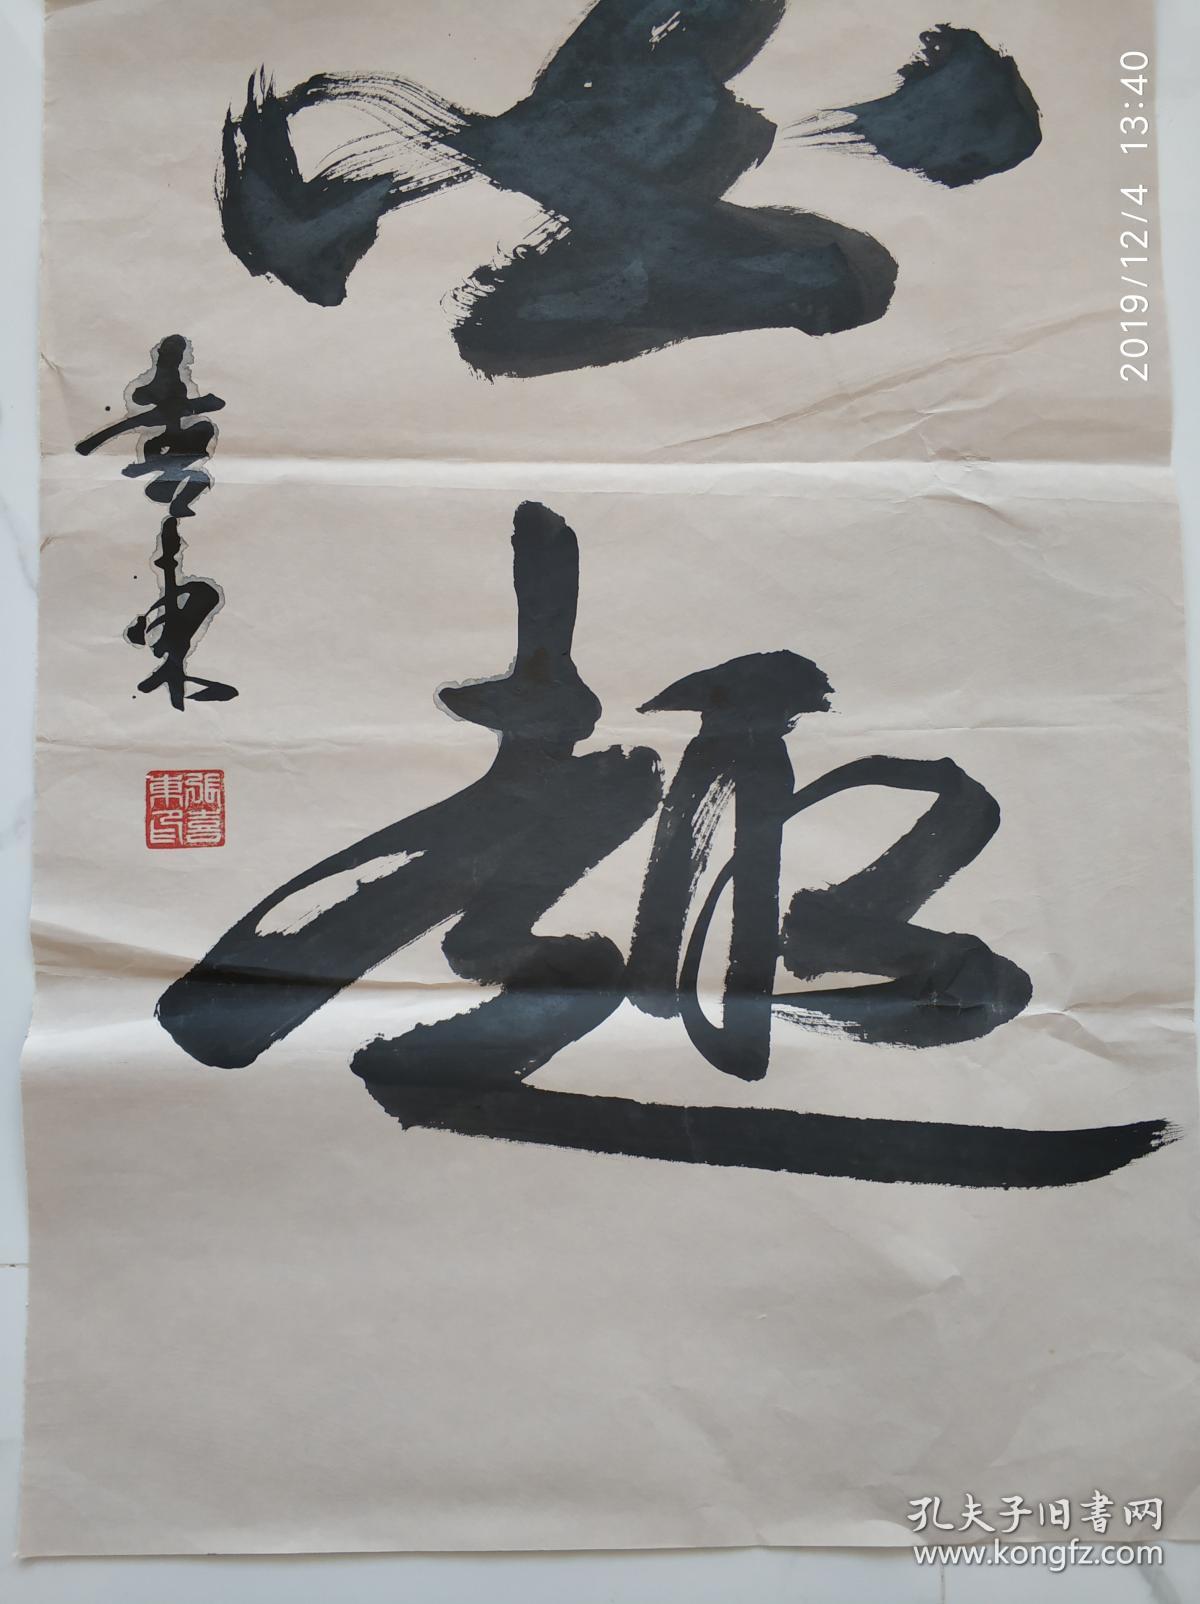 趣
喜東
張喜
東印
2019/12/4 13:40
孔夫子旧书网
www.kongfz.com